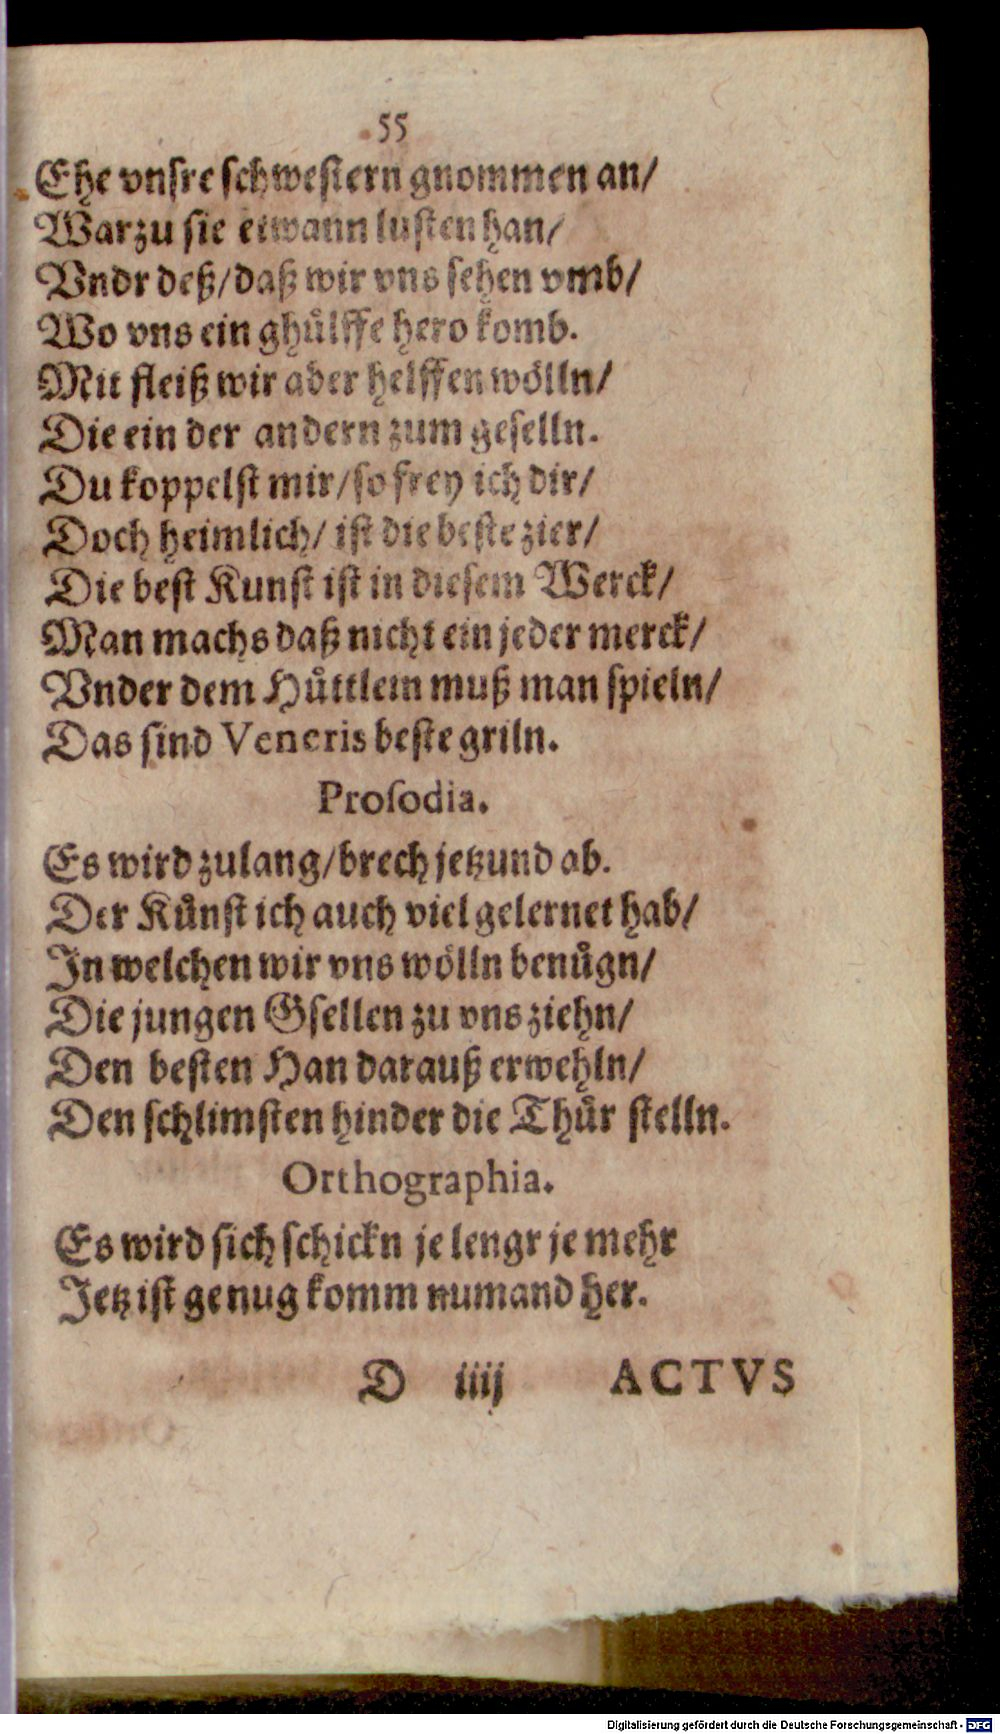 55
Ehe vnsre schwestern gnommen an/
Warzu sie etwann lusten han/
Vndr deß/daß wir vns sehen vmb/
Wo vns ein ghuͤlffe hero komb.
Mit fleiß wir ader helffen woͤlln/
Die ein der andern zum geselln.
Du koppelst mir/so frey ich dir/
Doch heimlich/ ist die beste zier/
Die best Kunst ist in diesem Werck/
Man machs daß nicht ein jeder merck/
Vnder dem Huͤttlein muß man spieln/
Das sind Veneris beste griln.
Prosodia.
Es wird zulang/brech jetzund ab.
Der Kuͤnst ich auch viel gelernet hab/
In welchen wir vns woͤlln benuͤgn/
Die jungen Gsellen zu vns ziehn/
Den besten Han darauß erwehln/
Den schlimsten hinder die Thuͤr stelln.
Orthographia.
Es wird sich schickn je lengr je mehr
Jetz ist genug komm numand her.
D iiij ACTVS
Digitalisierung gefördert durch die Deutsche Forschungsgemeinschaft - DFG